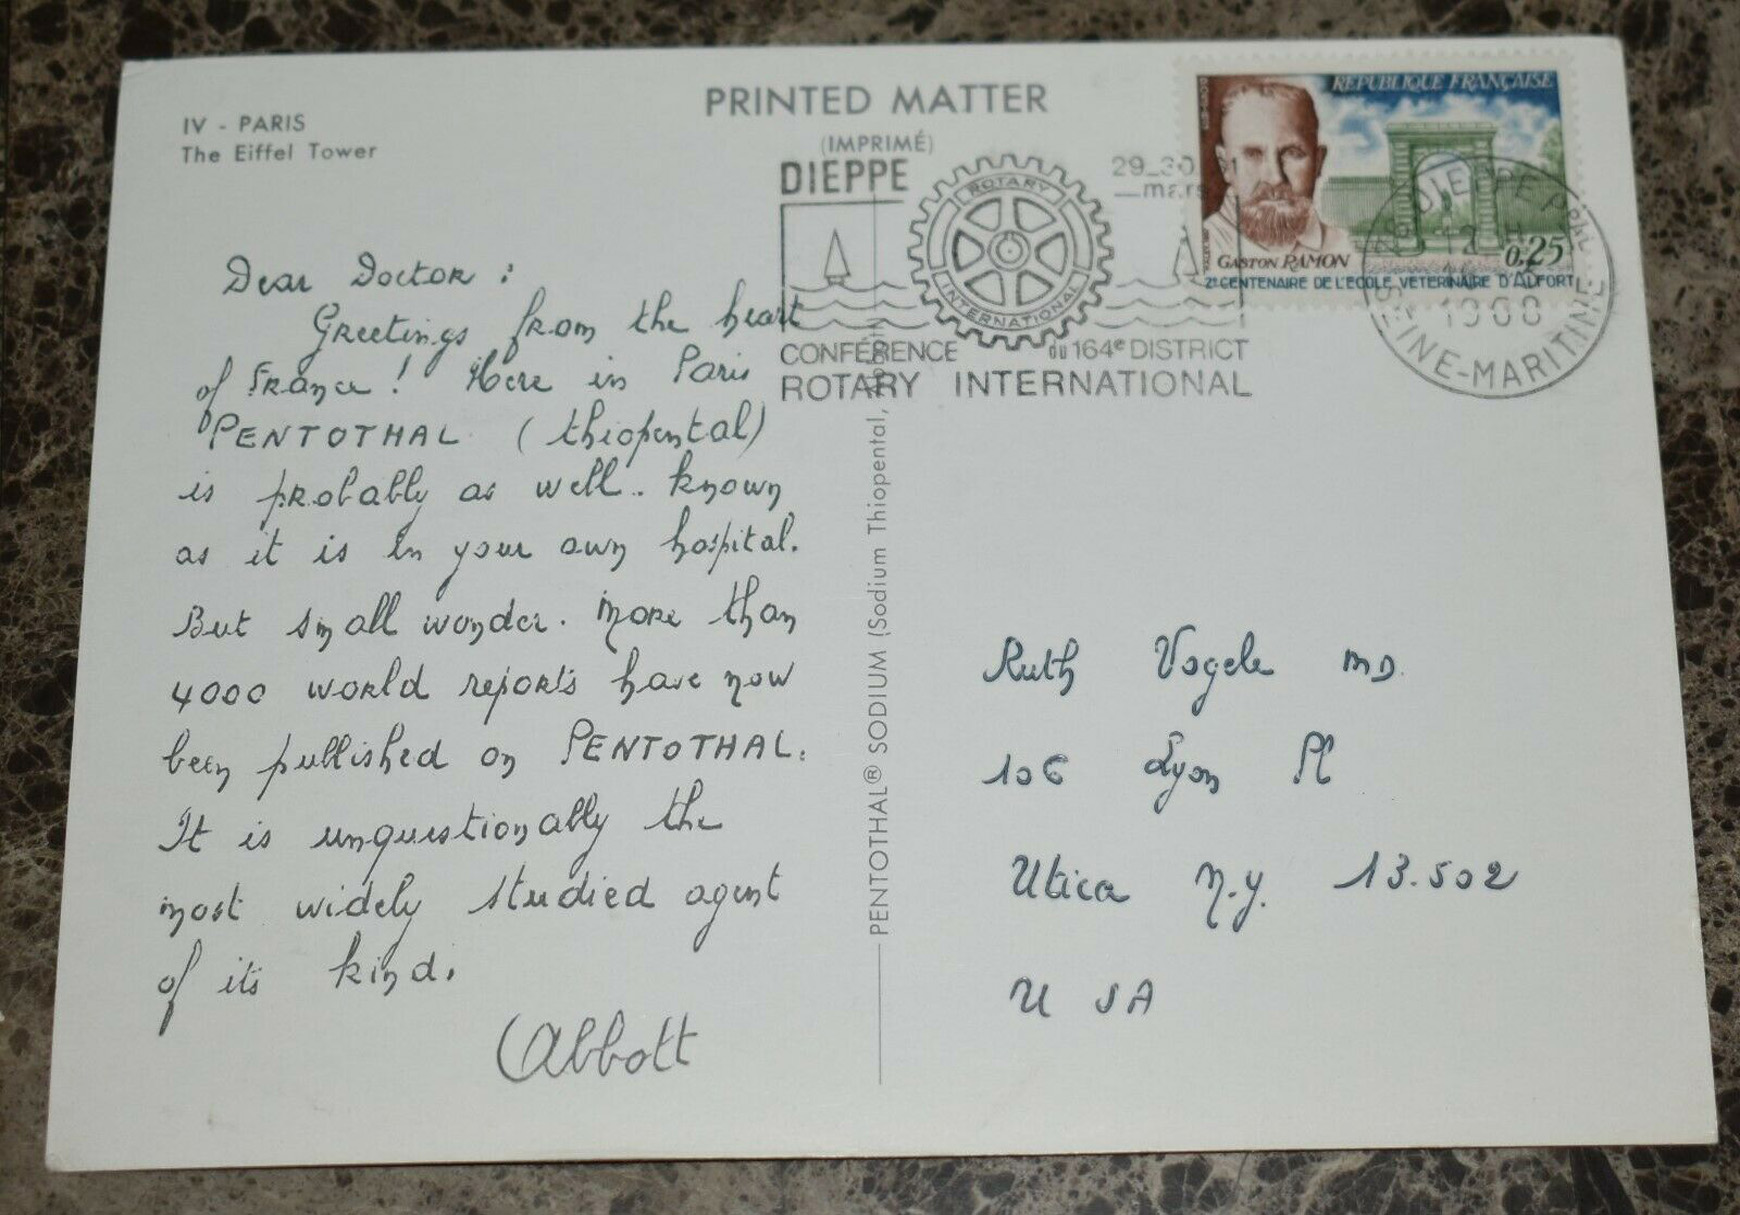 IV - PARIS
The Eiffel Tower
PRINTED MATTER
(IMPRIMÉ)
DIEPPE
29_30
mars
ROTARY
INTERNATIONAL
CONFÉRENCE du 164e DISTRICT
ROTARY INTERNATIONAL
REPUBLIQUE FRANÇAISE
GASTON RAMON
0,25
2e CENTENAIRE DE L'ECOLE VETERINAIRE D'ALFORT
DIEPPE PPAL
SEINE-MARITIME
1968
Dear Doctor :
Greetings from the heart
of France ! Here in Paris
PENTOTHAL (thiopental)
is probably as well.. known
as it is in your own hospital.
But small wonder. More than
4000 world reports have now
been published on PENTOTHAL.
It is unquestionably the
most widely studied agent
of its kind.
Abbott
PENTOTHAL® SODIUM (Sodium Thiopental,
Ruth Vogele MD.
106 Lyon Pl
Utica N.Y. 13.502
U SA